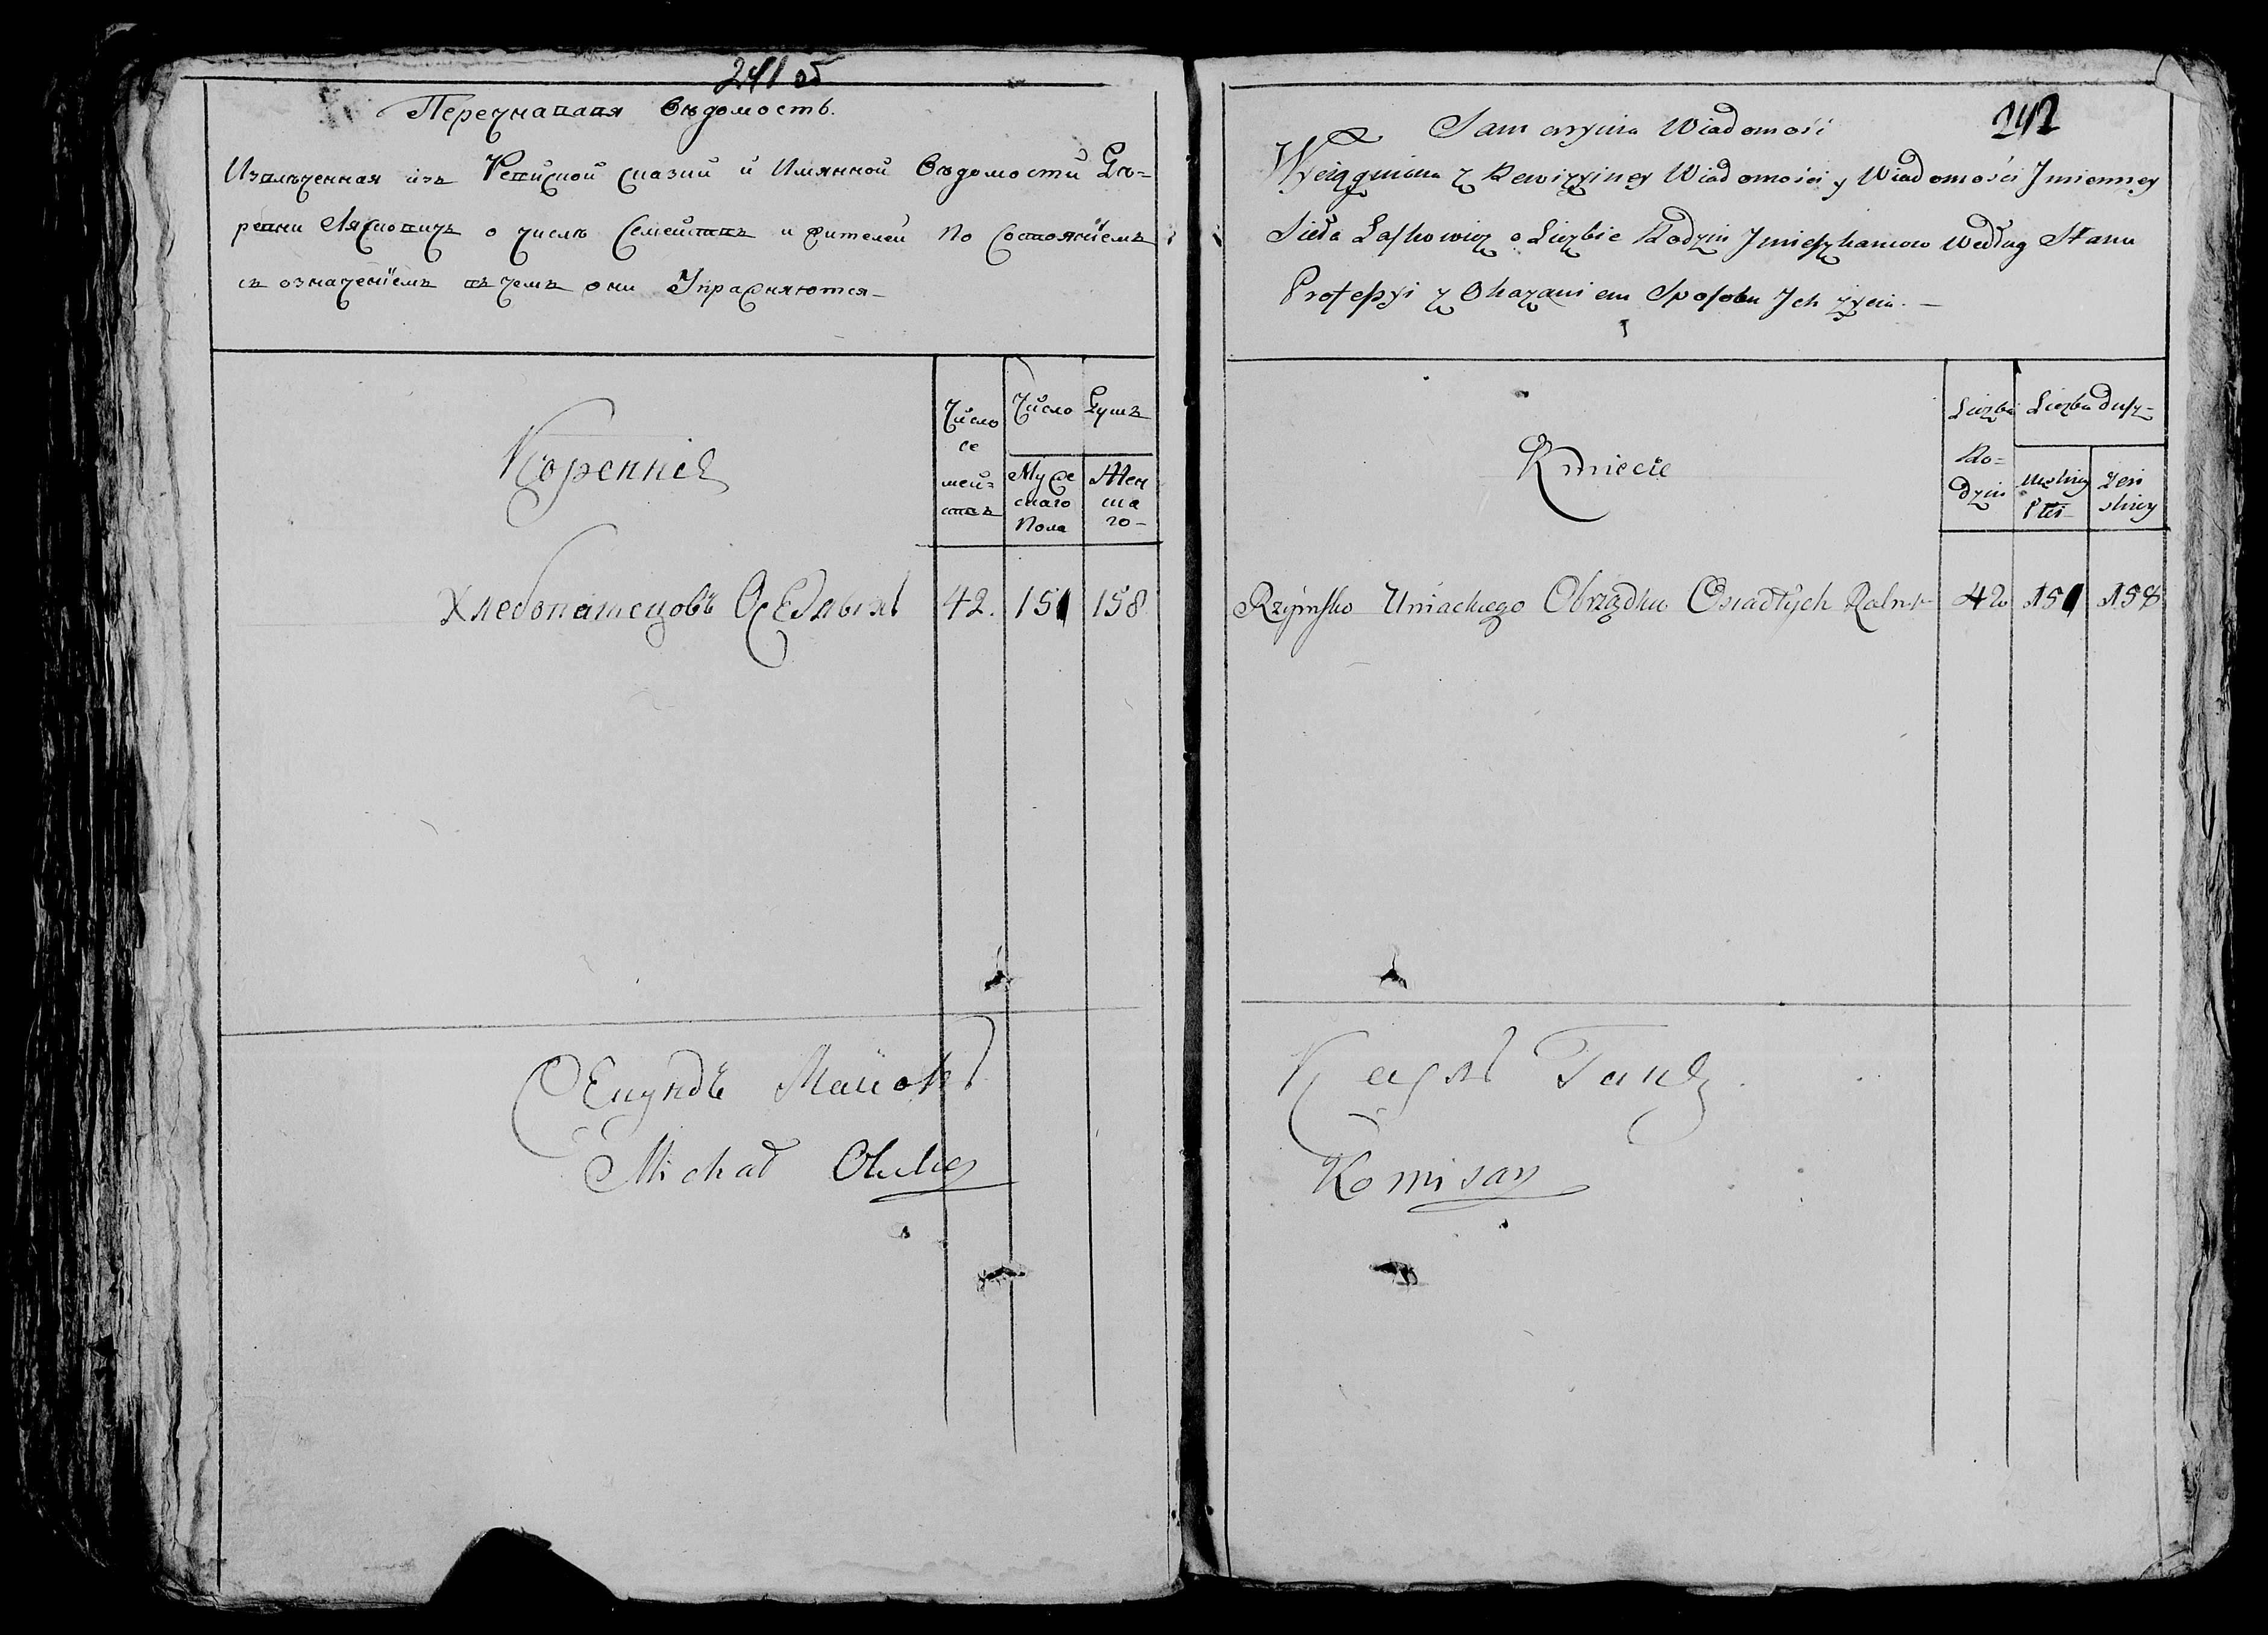 241 об
Перечневая Вѣдомость.
Извлеченная изъ Ревизской сказки и Имянной Вѣдомости Де=
ревни Лясковичъ о числѣ Семействъ и жителей по Состояніемъ
съ означеніемъ въ чемъ они Упражняются
Число
се
мей=
ствъ
Число Душъ
Коренніе
Мужескаго Пола
Женскаго
Хлебопашецовъ Оседлыхъ 42. 151 158
Секундъ Маиоръ
Michał
242
Sumaryina Wiadomość
Wyciągniona z Rewizyiney Wiadomości y Wiadomości Jmienney
Sieła Laskowicz o Liczbie Rodzin Jmieszkancow Według Stanu
Professyi z Okazaniem Sposobu Jch życia.
Liczba
Ro=
dzin
Liczba dusz
Kmiecie
męskiey Płci
żeńskiey
Rzymsko Uniackiego Obrządku Osiadłych Roln. 42 151 158
Komisarz